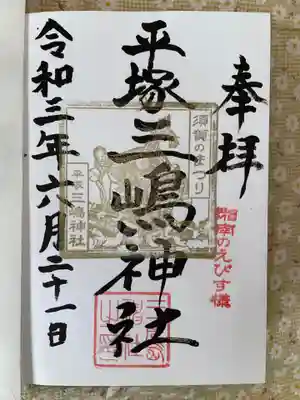 奉拝
湘南のえびす様
須賀のまつり
平塚三嶋神社
平塚三嶋神社
令和三年六月二十一日